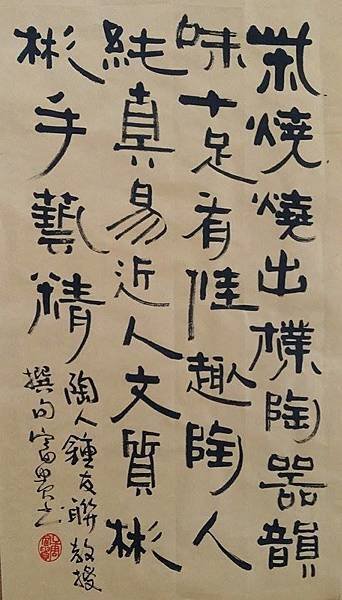 柴燒燒出樸陶器韻
味十足有佳趣陶人
純真易近人文質彬
彬手藝精
陶人鍾友聯教授
撰句富貴书